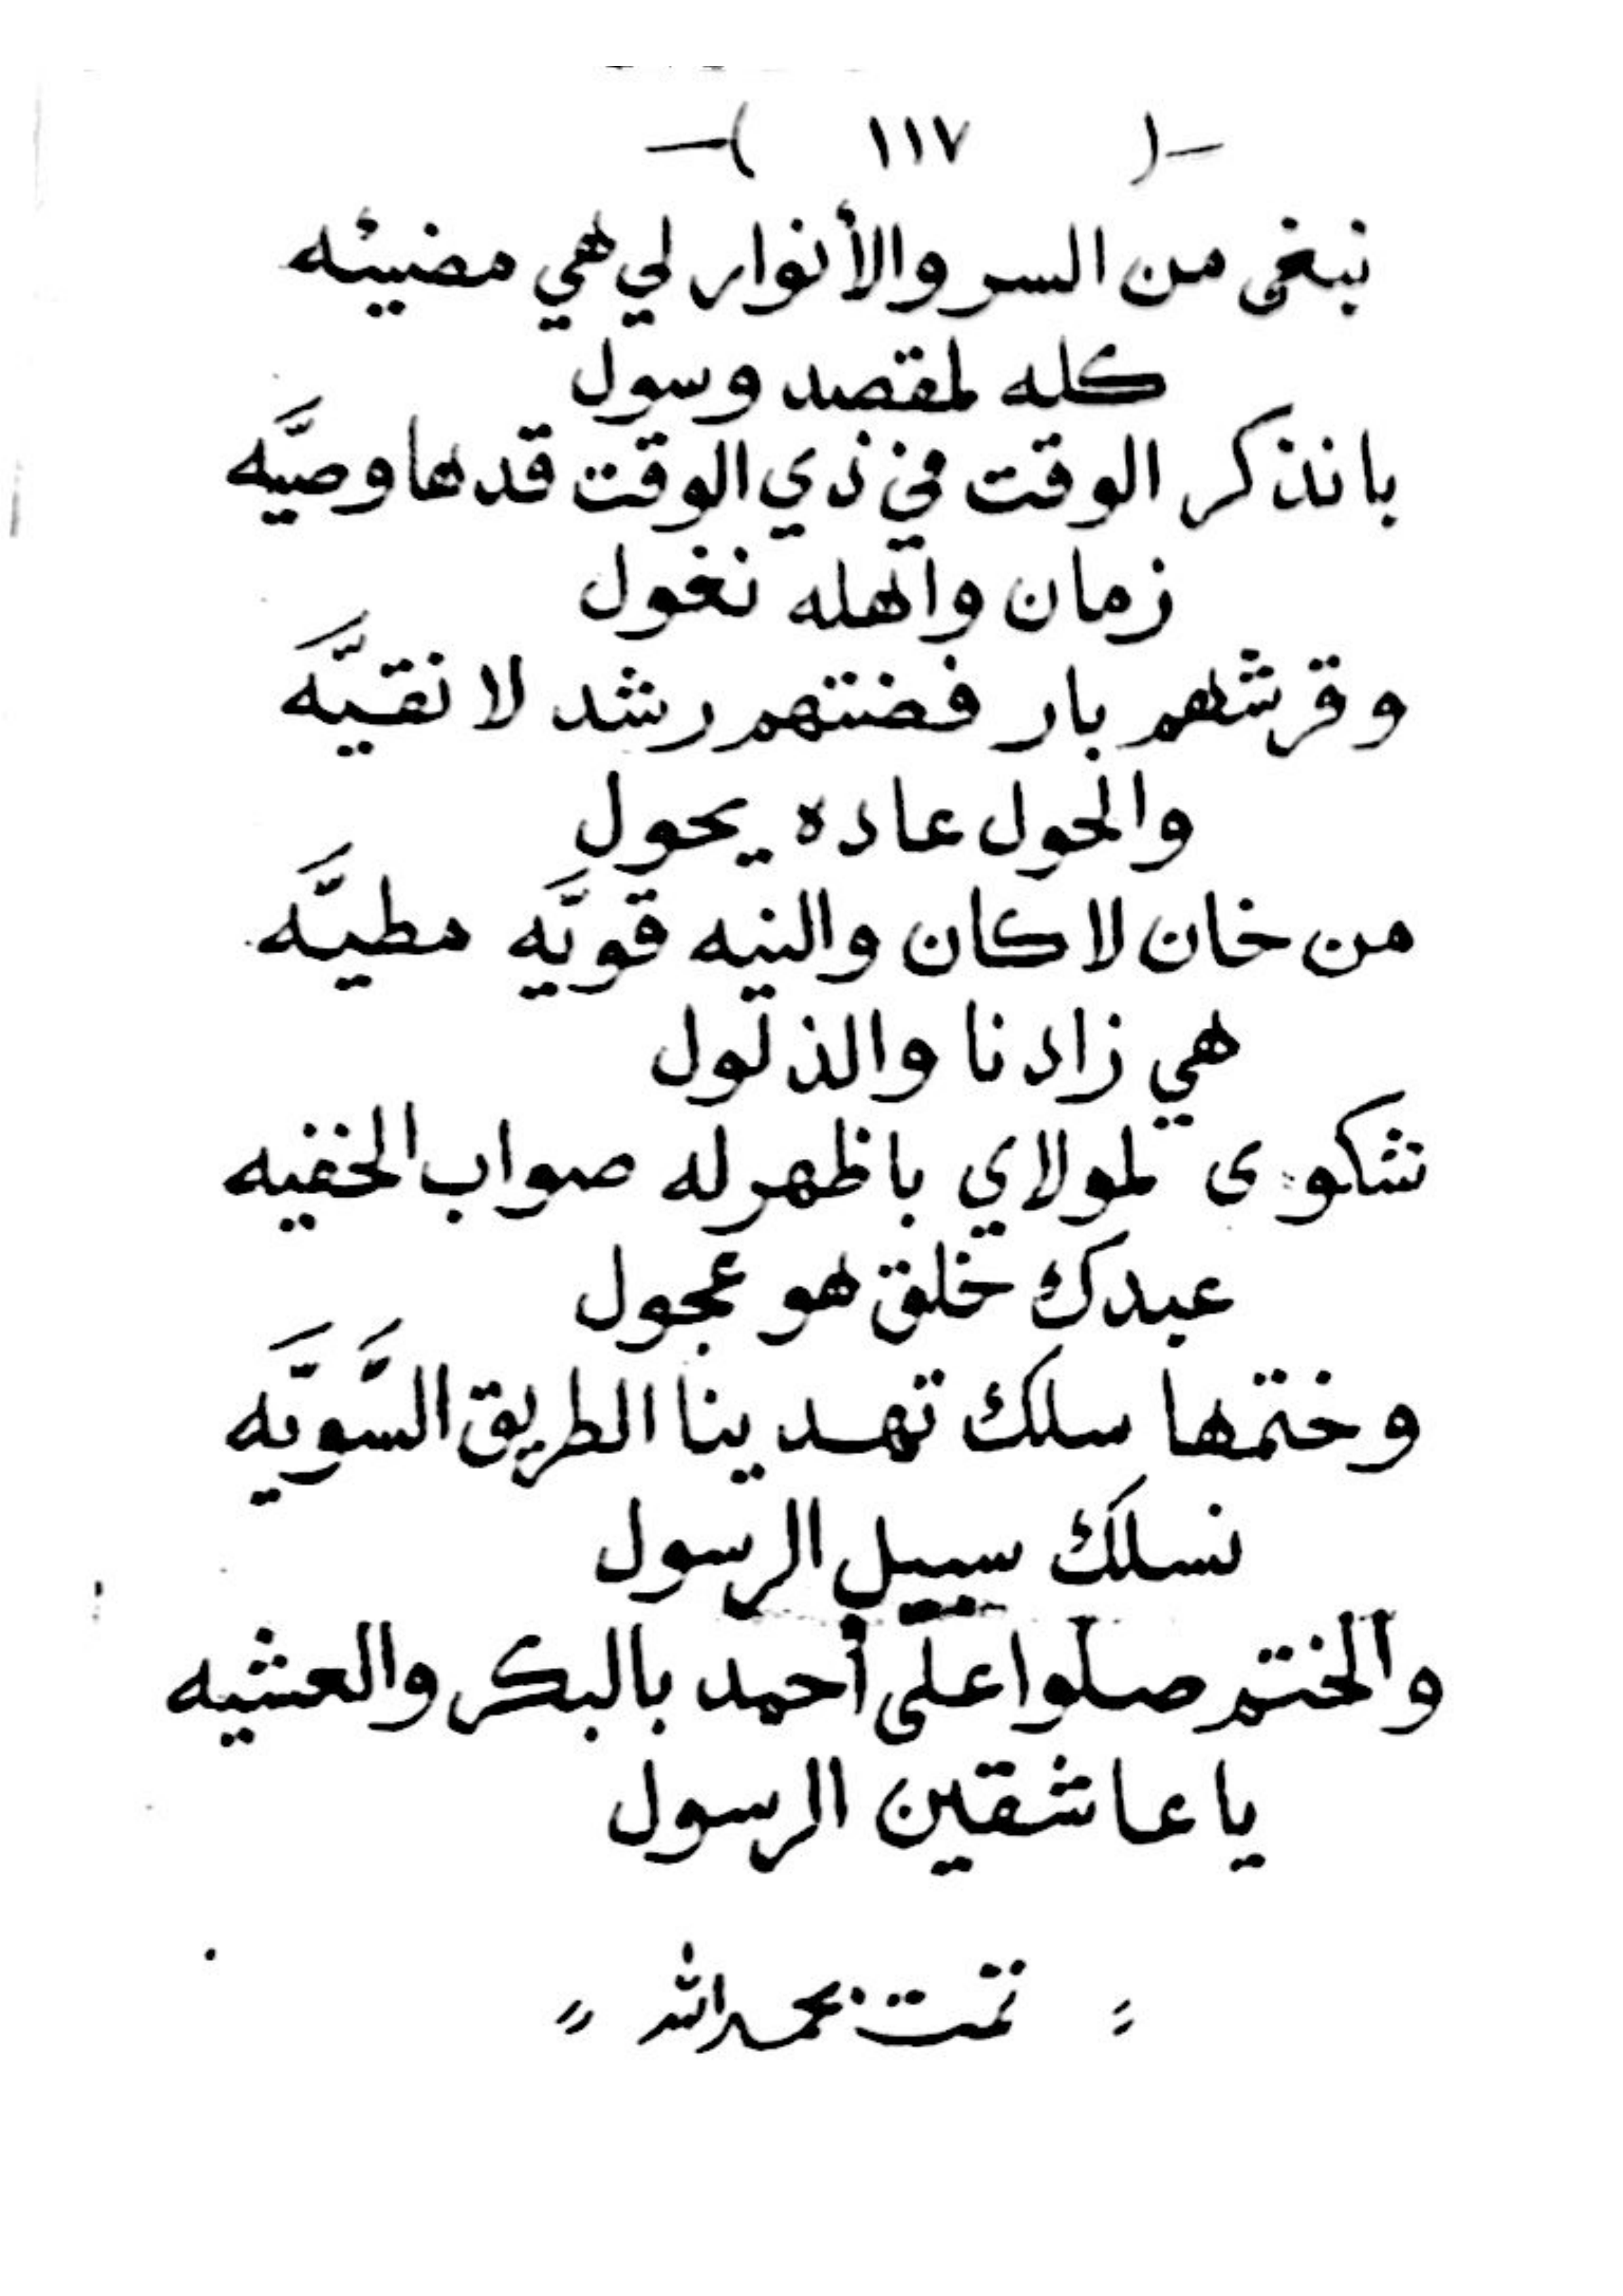 -( ١١٧ )-
نبغى من السر والأنوار لي هي مضيئه
كله لمقصد وسول
با نذكر الوقت في ذي الوقت قدها وصيَّه
زمان واهله نغول
وقرشهم بار فضتهم رشد لا نقيَّه
والحول عاده يحول
من خان لا كان والنيه قويَّه مطيَّه
هي زادنا والذلول
نشكوى لمولاي باظهر له صواب الخفيه
عبدك خلق هو عجول
وختمها سلك تهدينا الطريق السَّويَّه
نسلك سبيل الرسول
والختم صلوا على أحمد بالبكر والعشيه
يا عاشقين الرسول
تمت بحمد الله